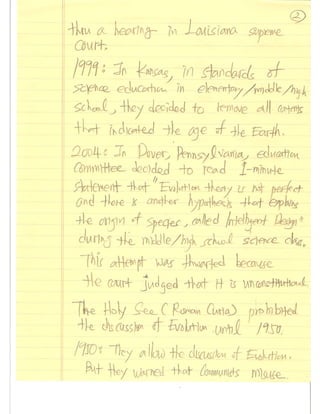 2
thru a hearing in Lauisiana supreme
court.
1999: In Kansas, in standards of
science education in elementary/middle/high
school, they decided to remove all contents
that indicated the age of the Earth.
2004: In Dover, Pennsylvania, education
committee decided to read 1-minute
statement that "Evolution theory is not perfect
and there is another hypothesis that explains
the origin of species, called Intelligent Design"
during the middle/high school science class.
This attempt was thwarted because
the court judged that it is unconstitutional.
The Holy See (Roman Curia) prohibited
the discussion of Evolution until 1950.
1950: They allow the discussion of Evolution.
But they warned that Communists misuse